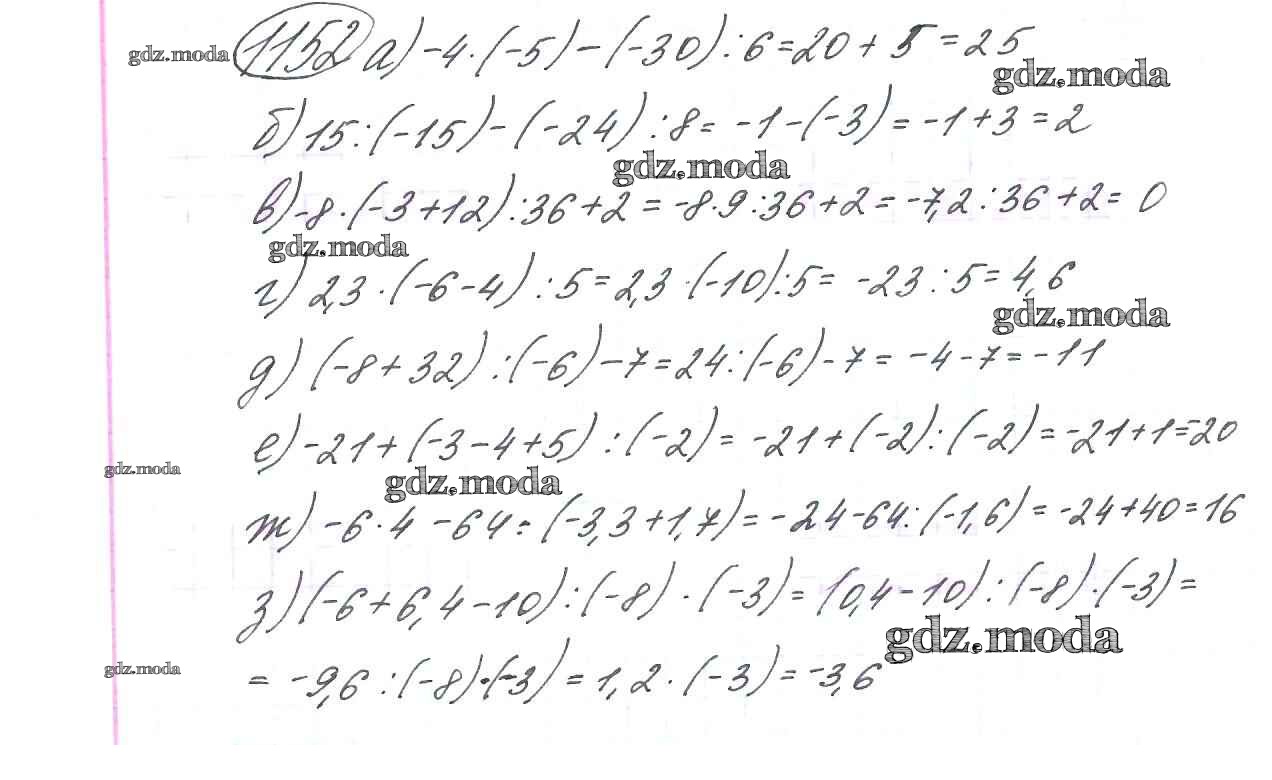 gdz.moda 1152 а) -4·(-5)-(-30):6=20+5=25
gdz.moda
б) 15:(-15)-(-24):8=-1-(-3)=-1+3=2
gdz.moda
в) -8·(-3+12):36+2=-8·9:36+2=-7,2:36+2=0
gdz.moda
г) 2,3·(-6-4):5=2,3·(-10):5=-23:5=4,6
gdz.moda
д) (-8+32):(-6)-7=24:(-6)-7=-4-7=-11
е) -21+(-3-4+5):(-2)=-21+(-2):(-2)=-21+1=-20
gdz.moda
gdz.moda
ж) -6·4-64:(-3,3+1,7)=-24-64:(-1,6)=-24+40=16
з) (-6+6,4-10):(-8)·(-3)=(0,4-10):(-8)·(-3)=
gdz.moda
gdz.moda
=-9,6:(-8)·(-3)=1,2·(-3)=-3,6